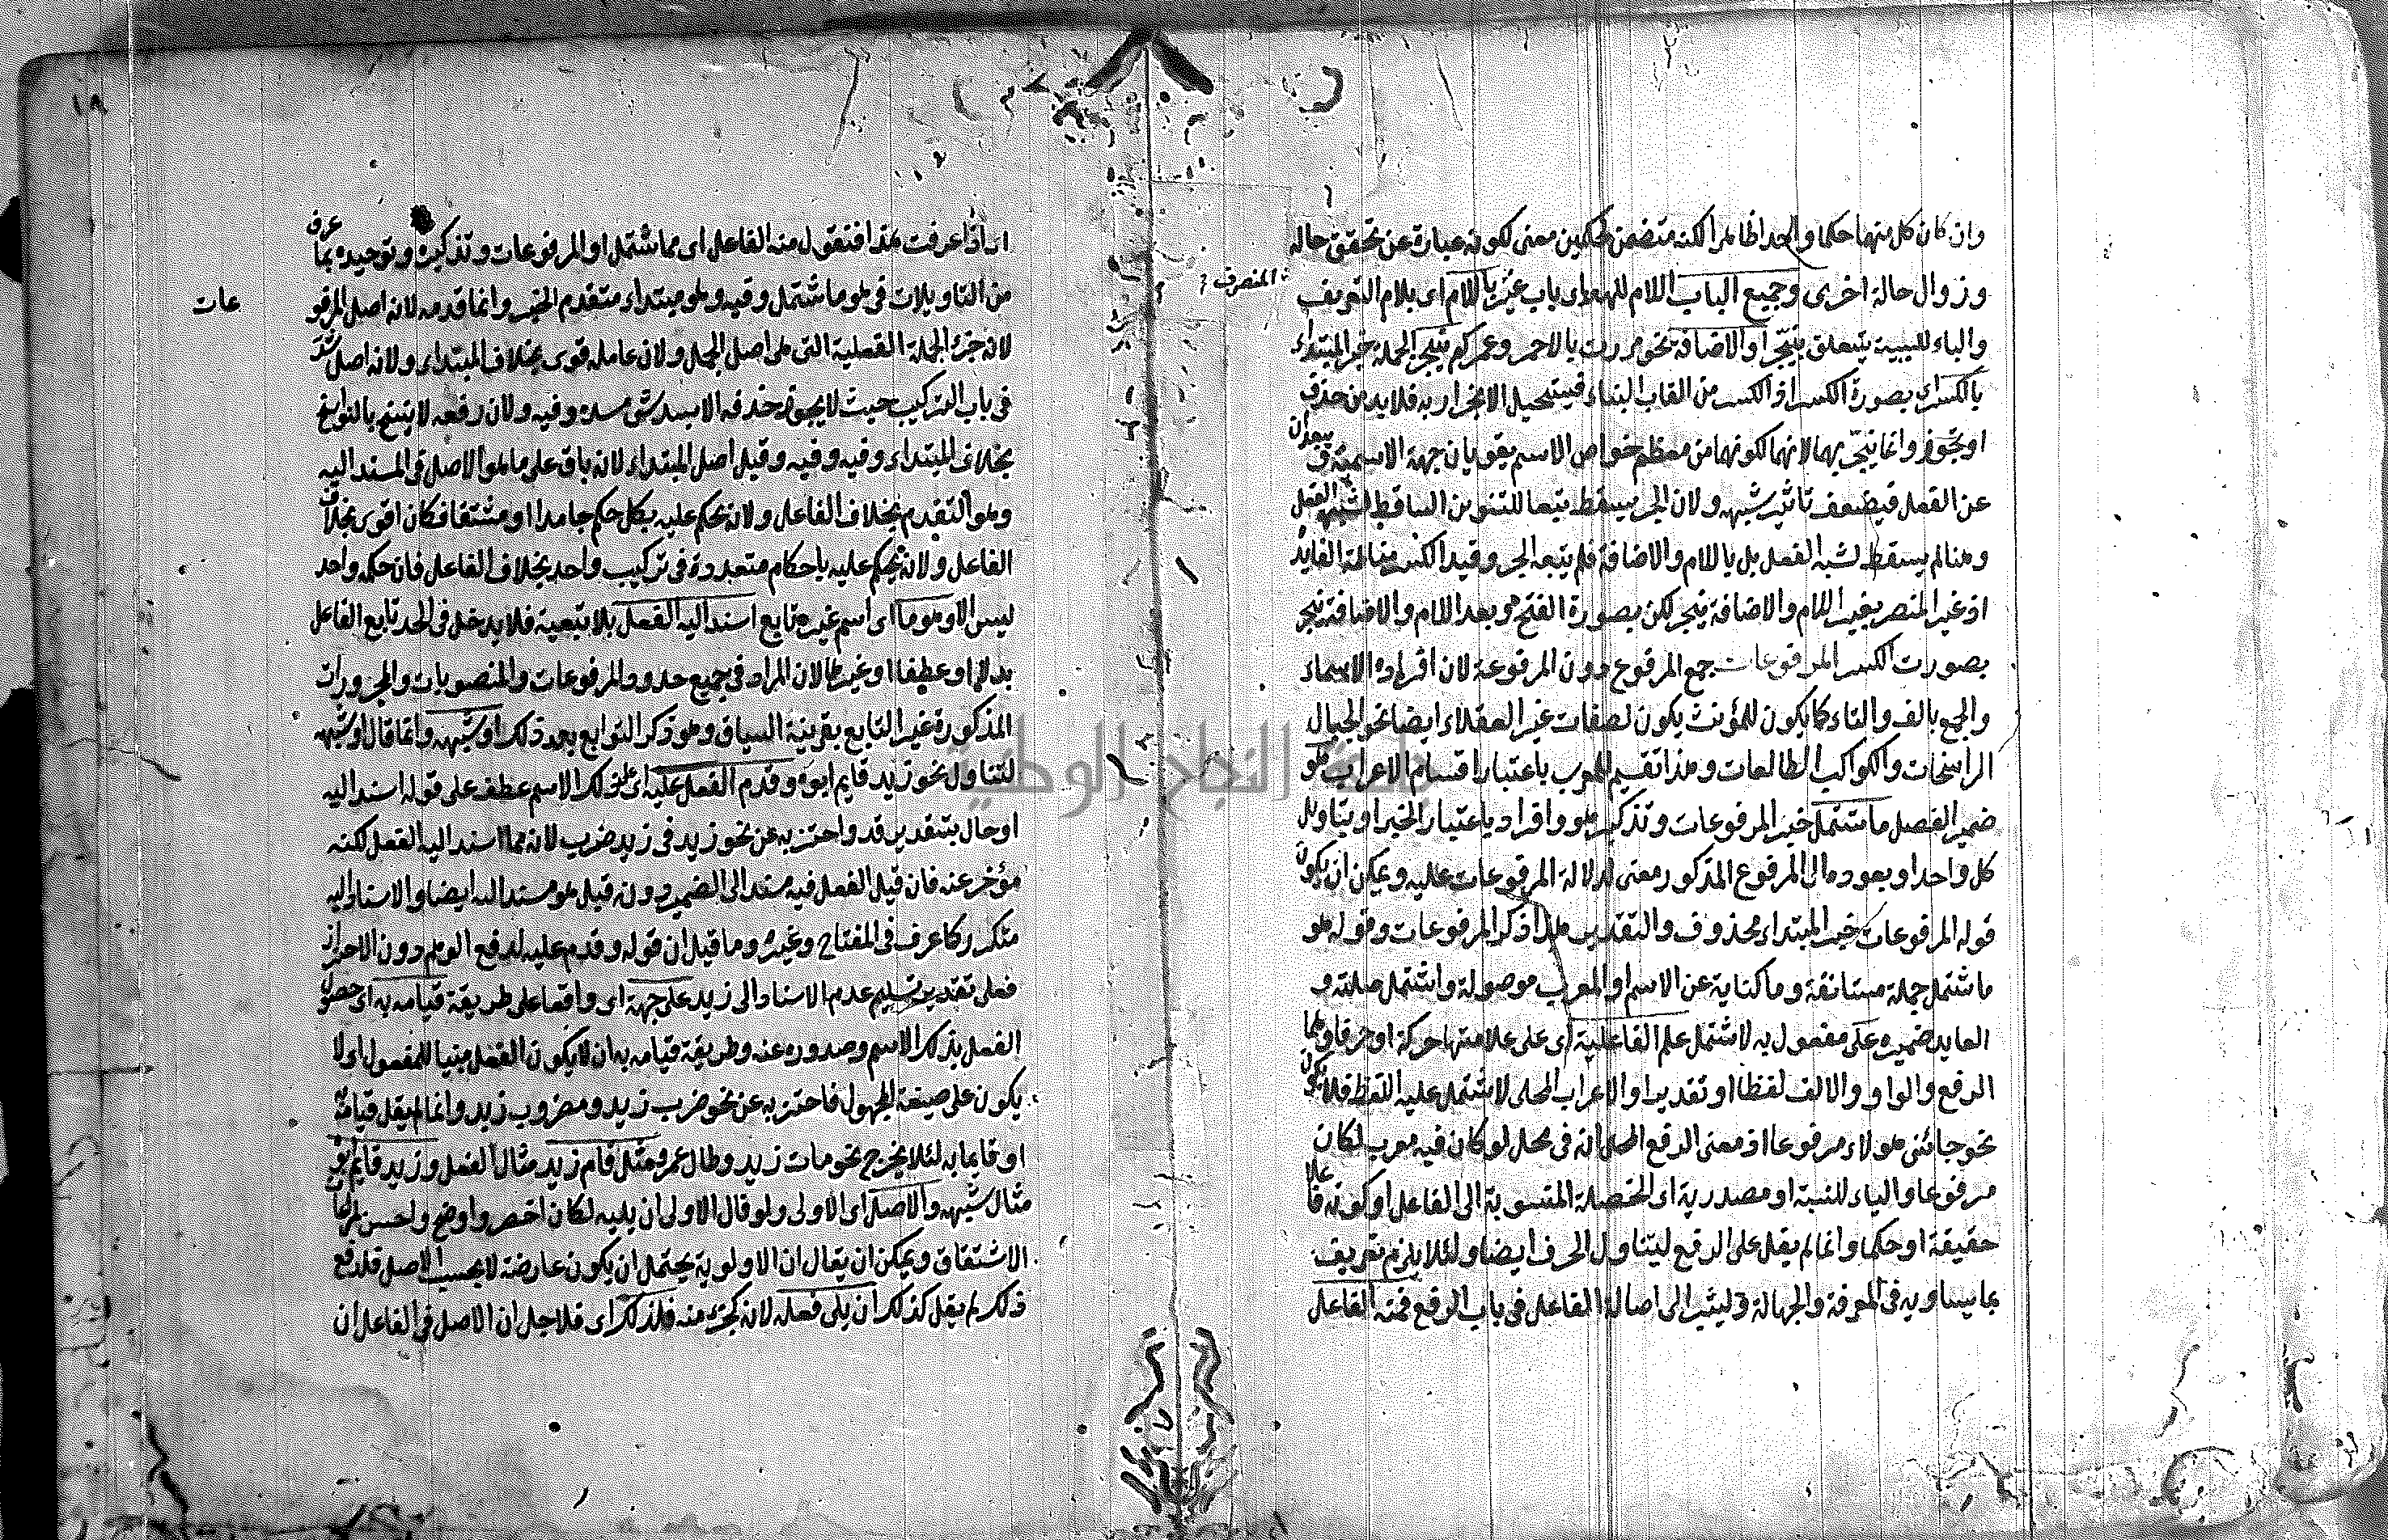 وان كان كل منها حكما واحدا ظاهرا لكنه متضمن لحكمين معنى لكونه عبارة عن تحقق حاله
وزوال حالة اخرى وجميع الباب اللام للعهد اى باب غير باللام اى بلام التعريف
المنصرف
والباء للسببية يتعلق بينجر او الاضافة نحو مررت بالاحمر وعمركم ينجر الجملة خبر المبتداء
بالكسر اى بصورة الكسر اذ الكسر من القاب البناء فيستحيل الانجرار به فلا بد من حذف
او تجوز وانما ينجر بهما لانهما لكونهما من معظم خواص الاسم يقويان جهة الاسمية فيبعدان
عن الفعل فيضعف تاثير شبهه ولان الجر يسقط تبعا للتنوين الساقط لشبه الفعل
وهنا لم يسقط لشبه الفعل بل باللام والاضافة فلم يتبعه الجر وقيد الكسر
اذ غير المنصرف بغير اللام والاضافة ينجر لكن بصورة الفتح وبعد اللام والاضافة ينجر
بصورت الكسر المرفوعات جمع المرفوع دون المرفوعة لان افراده الاسماء
والجمع بالف والتاء كما يكون للمؤنث يكون لصفات غير العقلاء ايضا نحو الجبال
الراسخات والكواكب الطالعات وهذا تقسيم للمعرب باعتبار اقسام الاعراب هو
ضمير الفصل ما شتمل خبر المرفوعات وتذكير هو وافراده باعتبار الخبر او بتاويل
كل واحد او بعوده الى المرفوع المذكور معنى لدلالة المرفوعات عليه ويمكن ان يكون
قوله المرفوعات خبر المبتداء محذوف والتقدير هذا ذكر المرفوعات وقوله هو
ما شتمل جملة مستانفة وما كناية عن الاسم او المعرب موصولة واشتمل صلته و
العايد ضميره على مفعول به لاشتمل علم الفاعلية اى على علامتها حركة او حرفا وهما
الرفع والواو والالف لفظا او تقديرا والاعراب المحلى لا شتمل عليه اللفظ فلا يكون
نحو جائنى هولاء مرفوعا اذ معنى الرفع المحلى انه فى محل لو كان فيه معرب لكان
مرفوعا والياء للنسبة او مصدرية اى الخصلة المنسوبة الى الفاعل او كونه فاعلا
حقيقة او حكما وانما لم يقل على الرفع ليتناول الحرف ايضا ولئلا يلزم تعريف
بما يساويه فى المعرفة والجهالة وليشير الى اصالة الفاعل فى باب الرفع فمنه الفاعل
اى اذا عرفت هذا فنقول منه الفاعل اى مما شتمل او المرفوعات وتذكيره وتوحيده بما عرف
من التاويلات فى هو ما شتمل وفيه وهو مبتداء متقدم الخبر وانما قدمه لانه اصل المرفو
عات
لانه جزء الجملة الفعلية التى هى اصل الجمل ولان عامله قوى بخلاف المبتداء ولانه اصل
فى باب التركيب حيث لا يجوز حذفه الا بسد شى مسده وفيه ولان رفعه لا ينسخ بالنواسخ
بخلاف المبتداء وفيه وفيه وقيل اصل المبتداء لانه باق على ما هو الاصل فى المسند اليه
وهو التقدم بخلاف الفاعل ولانه يحكم عليه بكل حكم جامدا او مشتقا فكان اقوى بخلاف
الفاعل ولانه يحكم عليه باحكام متعددة فى تركيب واحد بخلاف الفاعل فان حكمه واحد
ليس الا وهو ما اى اسم غيره تابع اسند اليه الفعل بلا تبعية فلا يدخل فى الحد تابع الفاعل
بدلا او عطفا او غيرها لان المراد فى جميع حدود المرفوعات والمنصوبات والمجرورات
المذكورة غير التابع بقرينة السياق وهو ذكر التوابع بعد ذلك او شبهه وانما قال او شبهه
لتناول نحو زيد قايم ابوه وقدم الفعل عليه اى على ذلك الاسم عطف على قوله اسند اليه
او حال بتقدير قد واحترز به عن نحو زيد فى زيد ضرب لانه مما اسند اليه الفعل لكنه
مؤخر عنه فان قيل الفعل فيه مسند الى الضمير دونه قيل هو مسند اليه ايضا والاسناد اليه
متكرر كما عرف فى المفتاح وغيره وما قيل ان قوله وقدم عليه لدفع الوهم دون الاحتراز
فعلى تقدير تسليم عدم الاسناد الى زيد على جهة اى واقعا على طريقة قيامه به اى حصول
الفعل بذلك الاسم وصدوره عنه وطريقة قيامه به ان لا يكون الفعل مبنيا للمفعول اى لا
يكون على صيغة المجهول فاحترز به عن نحو ضرب زيد ومضروب زيد وانما لم يقل قيامه
او قايما به لئلا يخرج نحو مات زيد وطال عمرو مثل قام زيد مثال الفعل وزيد قايم ابوه
مثال شبهه والاصل اى الاولى ولو قال الاولى ان يليه لكان اخصر واوضح واحسن لمراعاة
الاشتقاق ويمكن ان يقال ان الاولوية يحتمل ان يكون عارضة لا بحسب الاصل فلدفع
ذلك لم يقل كذلك ان يلى فعله لانه كجزء منه فلذلك اى فلاجل ان الاصل فى الفاعل ان